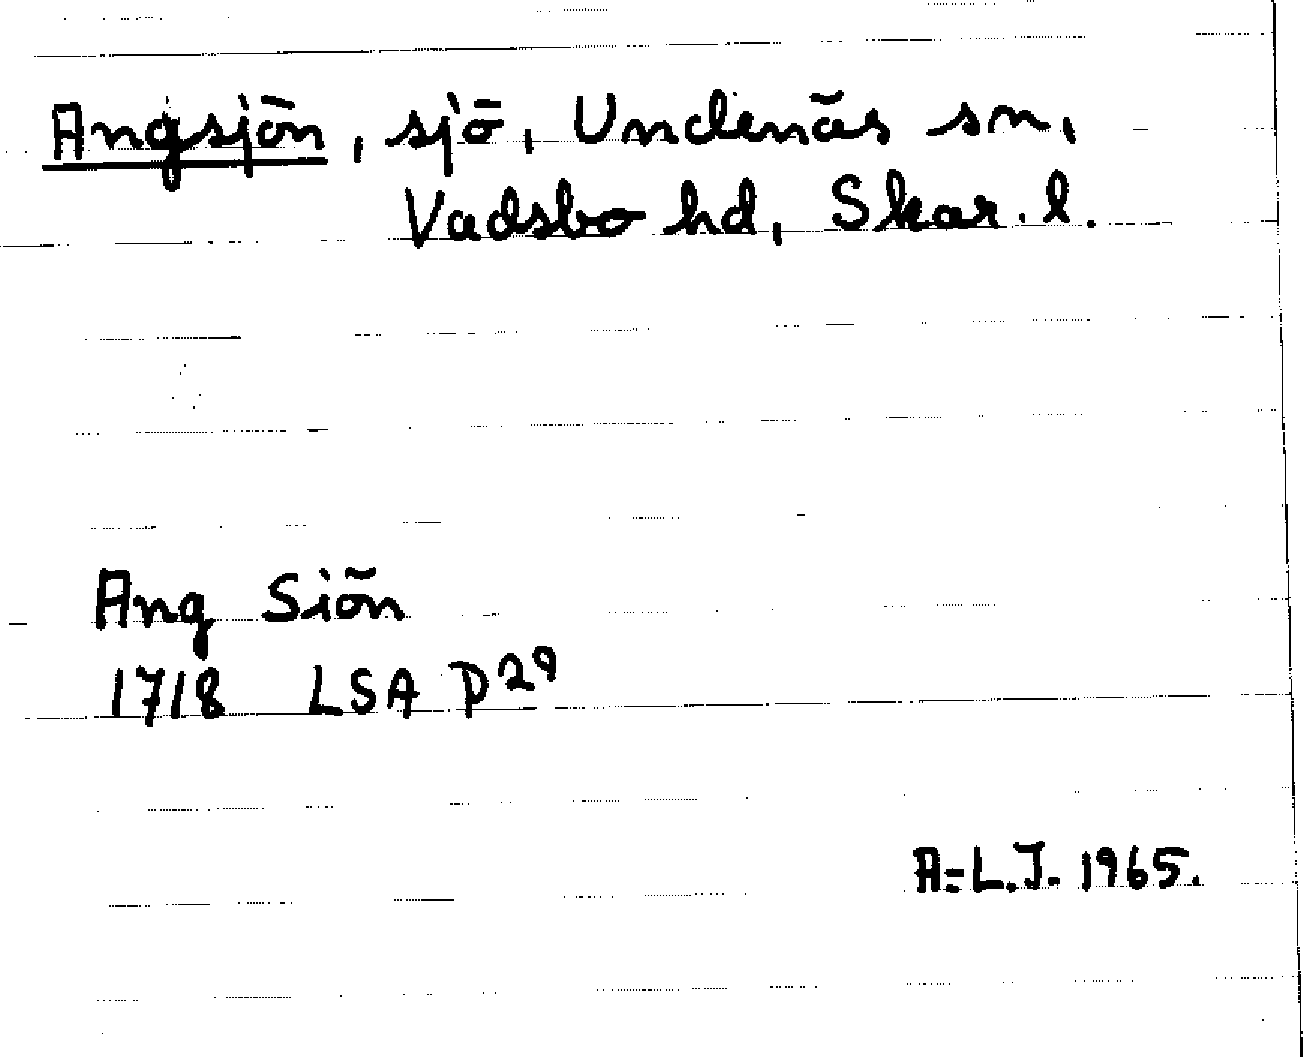 Angsjön, sjö, Undenäs sn,
Vadsbo hd, Skar. l.
Ang Siön
1718 LSA P29
A=L.J. 1965.